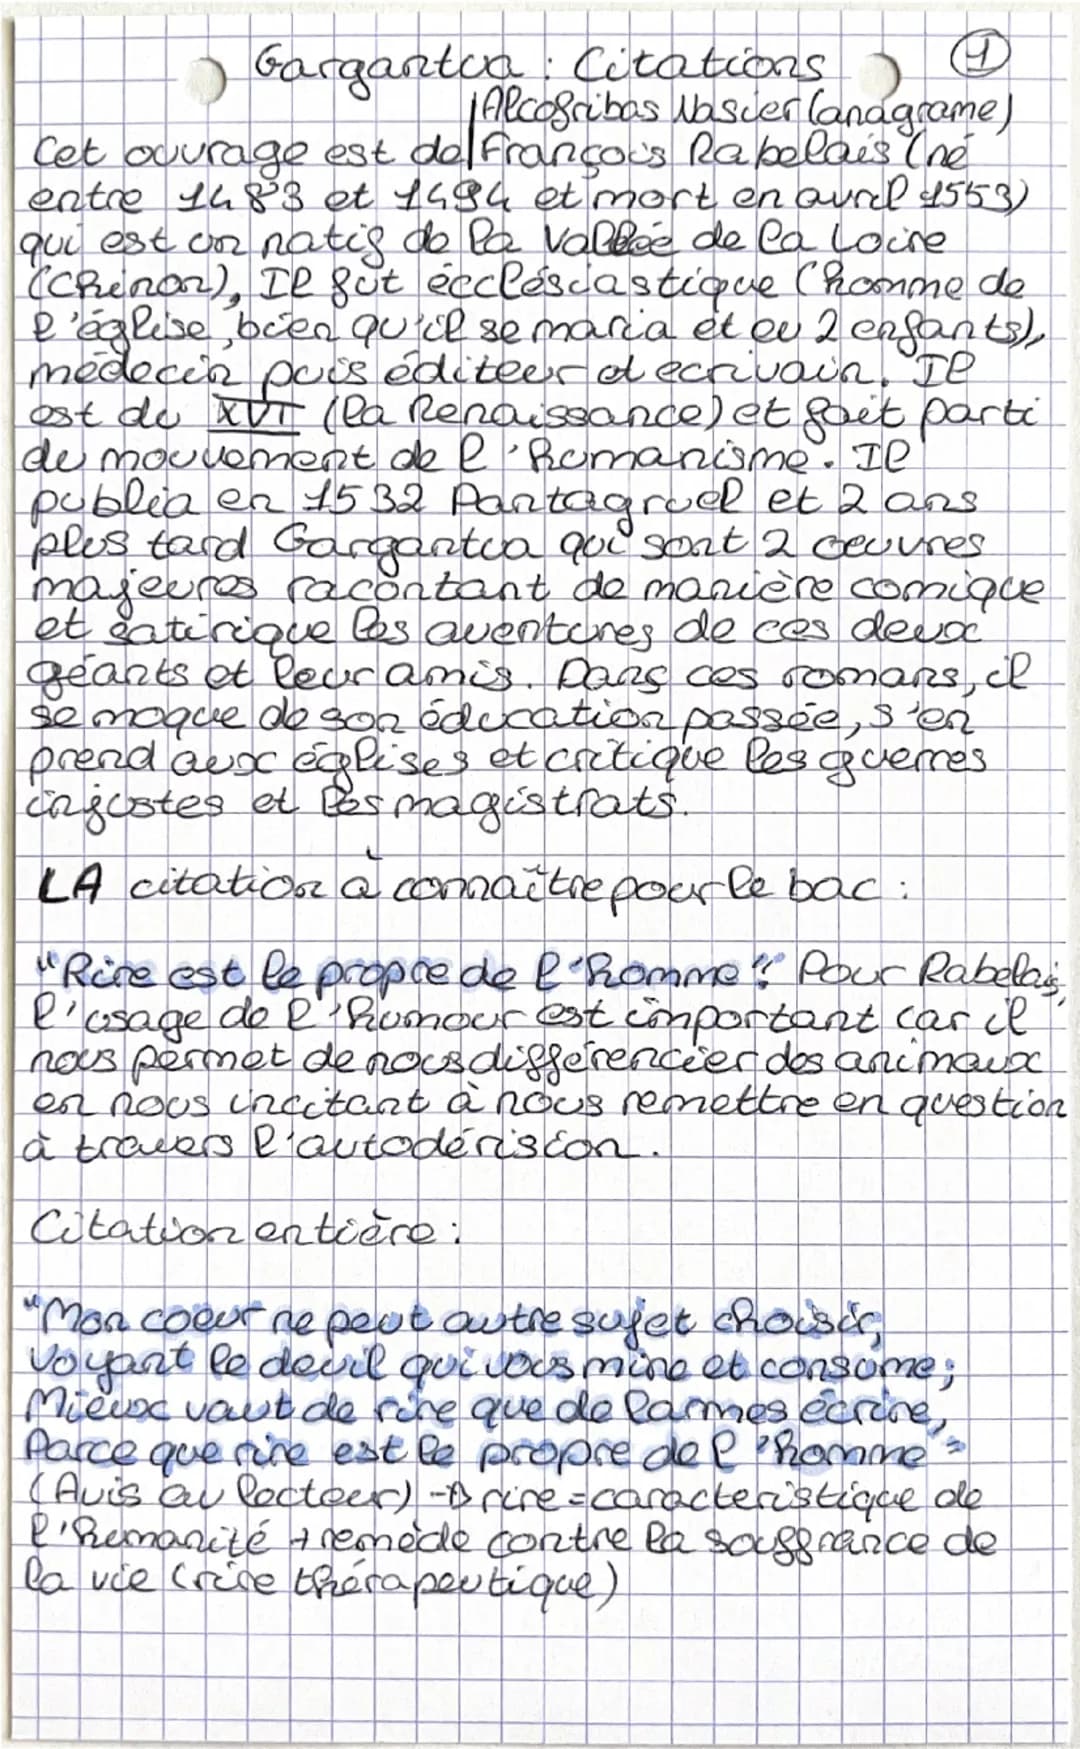 Gargantua : Citations
1
Alcofribas Nasier (anagrame)
Cet ouvrage est de François Rabelais (né
entre 1483 et 1494 et mort en avril 1553)
qui est un natif de la Vallée de la Loire
(Chinon), Il fut écclésiastique (homme de
l'église, bien qu'il se maria et eu 2 enfants),
médecin puis éditeur et ecrivain. Il
est du XVI (la Renaissance) et fait parti
du mouvement de l'Humanisme. Il
publia en 1532 Pantagruel et 2 ans
plus tard Gargantua qui sont 2 oeuvres
majeures racontant de manière comique
et satirique les aventures de ces deux
géants et leur amis. Dans ces romans, il
se moque de son éducation passée, s'en
prend aux églises et critique les guerres
injustes et les magistrats.
LA citation à connaître pour le bac :
"Rire est le propre de l'homme". Pour Rabelais,
l'usage de l'humour est important car il
nous permet de nous différencier des animaux
en nous incitant à nous remettre en question
à travers l'autodérision.
Citation entière :
"Mon coeur ne peut autre sujet choisir,
Voyant le deuil qui vous mine et consume ;
Mieux vaut de rire que de larmes écrire,
Parce que rire est le propre de l'homme"
(Avis au lecteur) -> rire = caracteristique de
l'humanité + remède contre la souffrance de
la vie (rire thérapeutique)